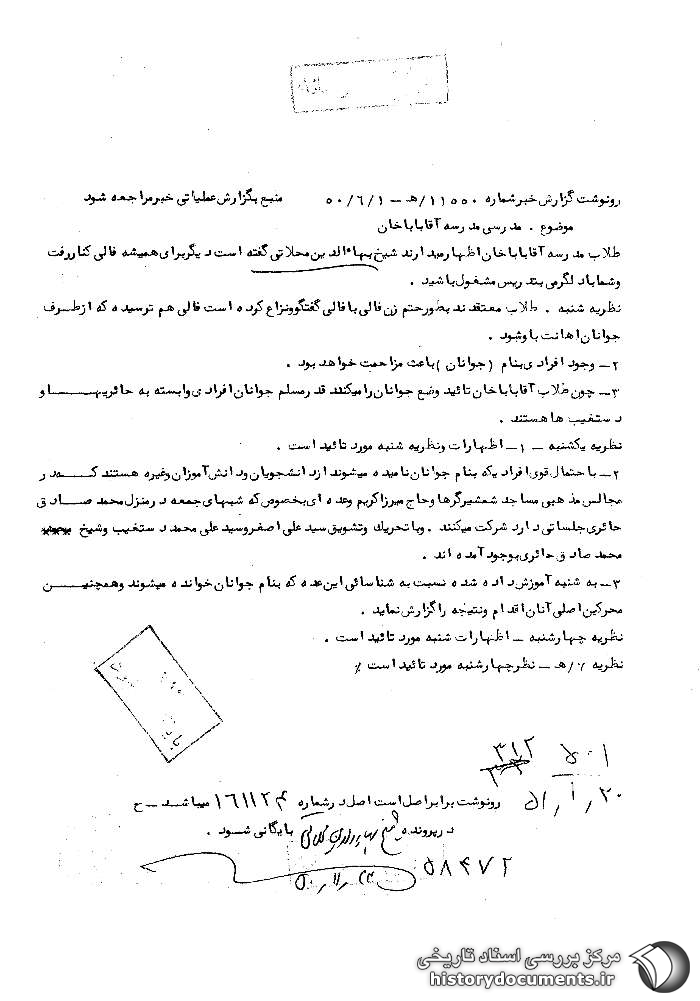 رونوشت گزارش خبر شماره ۱۱۵۵۰/هـ – ۵۰/۶/۱ منبع بگزارش عملیاتی خبر مراجعه شود
موضوع . مدرسی مدرسه آقاباباخان
طلاب مدرسه آقاباباخان اظهار میدارند شیخ بهاءالدین محلاتی گفته است دیگر برای همیشه فالی کنار رفت
وشما با دلگرمی بتدریس مشغول باشید .
نظریه شنبه . طلاب معتقدند بطور حتم زن فالی با فالی گفتگو و نزاع کرده است فالی هم ترسیده که از طرف
جوانان اهانت باو شود .
۲– وجود افرادی بنام (جوانان) باعث مزاحمت خواهد بود .
۳– چون طلاب آقاباباخان تائید وضع جوانان را میکنند قدر مسلم جوانان افرادی وابسته به حائریها و
دستغیب ها هستند .
نظریه یکشنبه – ۱– اظهارات ونظریه شنبه مورد تائید است .
۲– با احتمال قوی افرادیکه بنام جوانان نامیده میشوند از دانشجویان ودانش آموزان وغیره هستند که در
مجالس مذهبی مساجد شمشیرگرها وحاج میرزا کریم وعده ای بخصوص که شبهای جمعه در منزل محمد صادق
حائری جلساتی دارد شرکت میکنند . وبا تحریک وتشویق سید علی اصغر وسید علی محمد دستغیب وشیخ
محمد صادق حائری بوجود آمده اند .
۳– به شنبه آموزش داده شده نسبت به شناسائی این عده که بنام جوانان خوانده میشوند وهمچنین
محرکین اصلی آنان اقدام ونتیجه را گزارش نماید .
نظریه چهارشنبه – اظهارات شنبه مورد تائید است .
نظریه ۷/هـ – نظر چهارشنبه مورد تائید است ٪
۳۱۲
۵۰۱
۲۰ ر ۱ ر ۵۱
رونوشت برابر اصل است اصل در شماره ۱۶۱۱۲۴ میباشد – ح
در پرونده شیخ بهاءالدین محلاتی بایگانی شود .
۵۸۴۷۲
مرکز بررسی اسناد تاریخی
historydocuments.ir